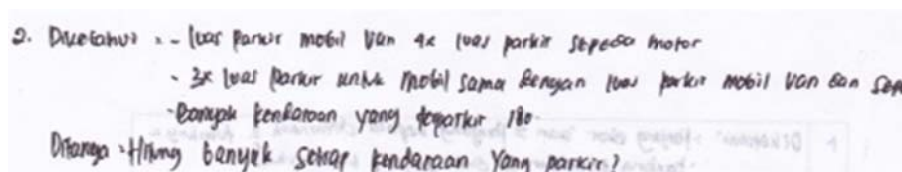 2. Diketahui : - luas parkir mobil van 4x luas parkir sepeda motor
- 3x luas parkir untuk mobil sama dengan luas parkir mobil van dan sep
- Banyak kendaraan yang diparkir 180
Ditanya : Hitung banyak setiap kendaraan yang parkir?